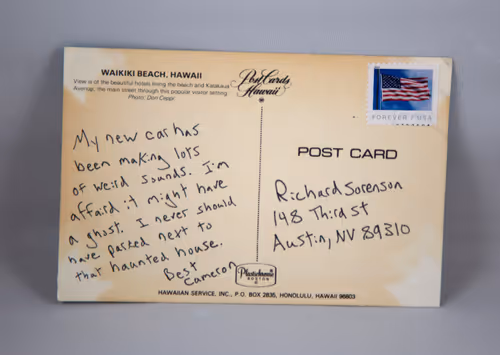 WAIKIKI BEACH, HAWAII
View is of the beautiful hotels lining the beach and Kalakaua
Avenue, the main street through this popular visitor setting
Photo: Don Ceppi
Post Cards
Hawaii
FOREVER / USA
My new car has
been making lots
of weird sounds. I'm
affaid it might have
a ghost. I never should
have parked next to
that haunted house.
Best
Cameron
POST CARD
Richard Sorenson
148 Third St
Austin, NV 89310
Plastichrome
BOSTON
HAWAIIAN SERVICE, INC., P.O. BOX 2835, HONOLULU, HAWAII 96803